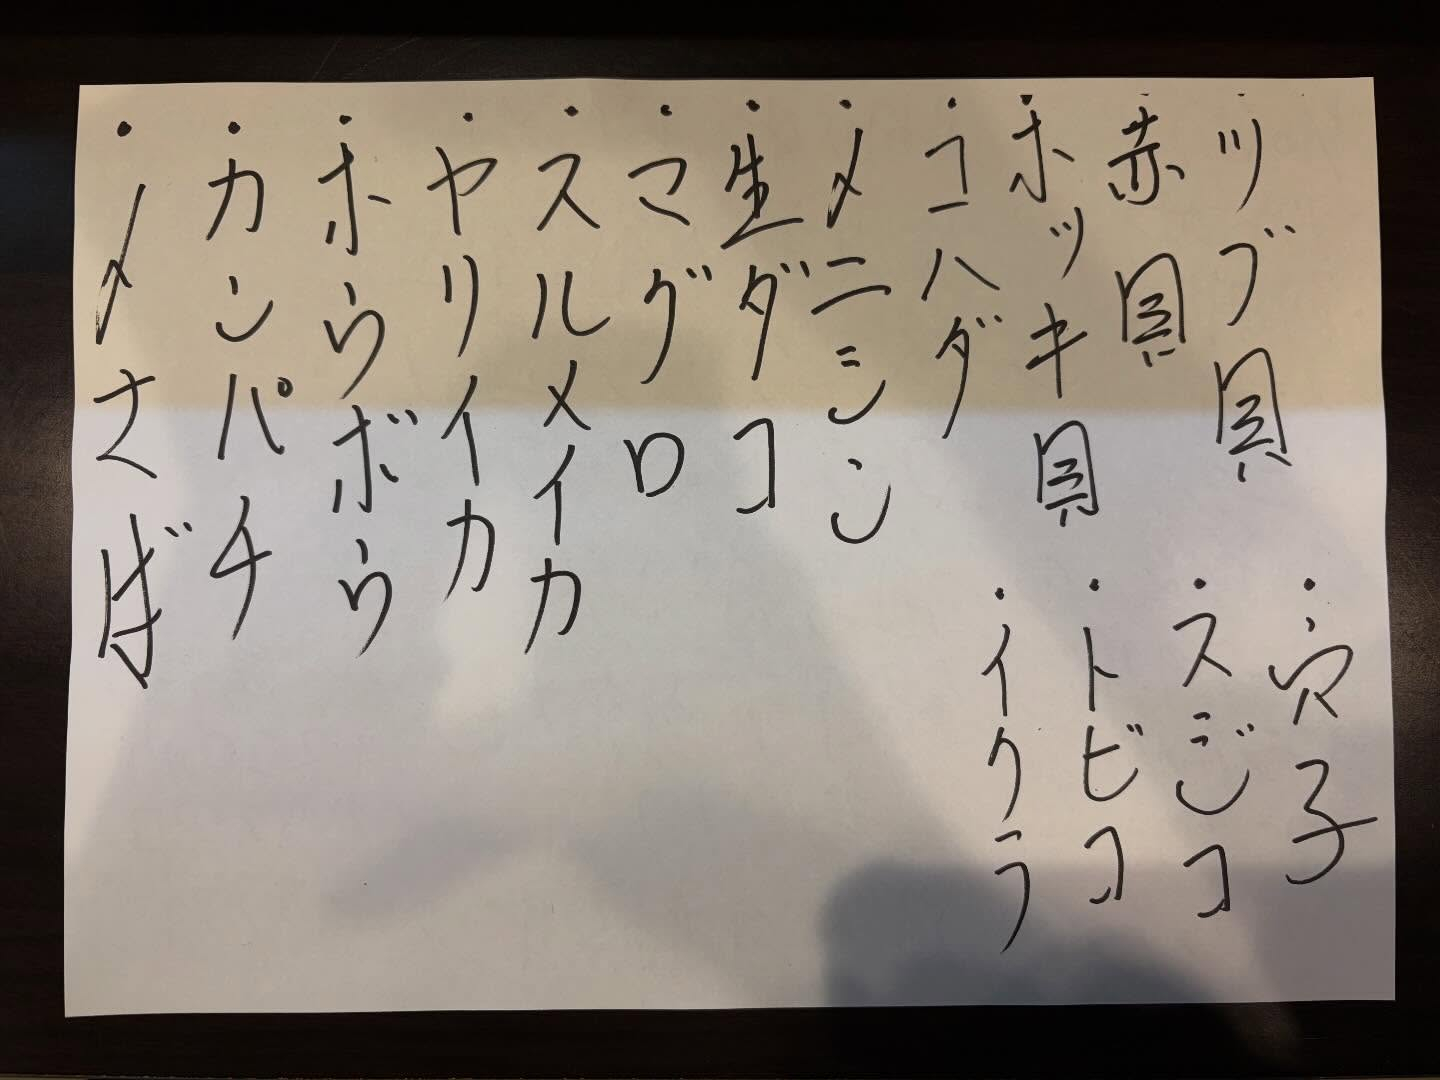 ・ツブ貝
・赤貝
・ホッキ貝
・コハダ
・〆ニシン
・生ダコ
・マグロ
・スルメイカ
・ヤリイカ
・ホウボウ
・カンパチ
・〆さば
・穴子
・スジコ
・トビコ
・イクラ